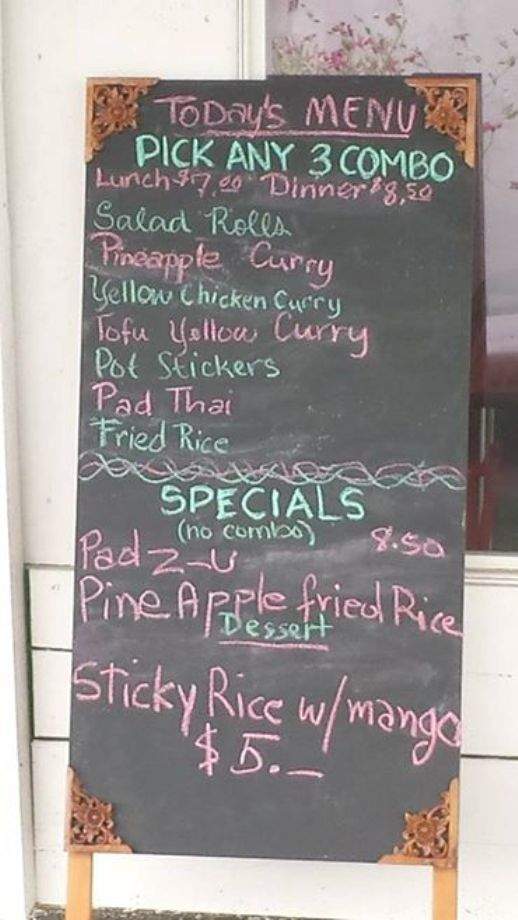 Today's MENU
PICK ANY 3 COMBO
Lunch $7.00 Dinner $8,50
Salad Rolls
Pineapple Curry
Yellow Chicken Curry
Tofu Yellow Curry
Pot Stickers
Pad Thai
Fried Rice
SPECIALS
(no combo) 8.50
Pad Z-U
Pine Apple fried Rice
Dessert
Sticky Rice w/mango
$5.—